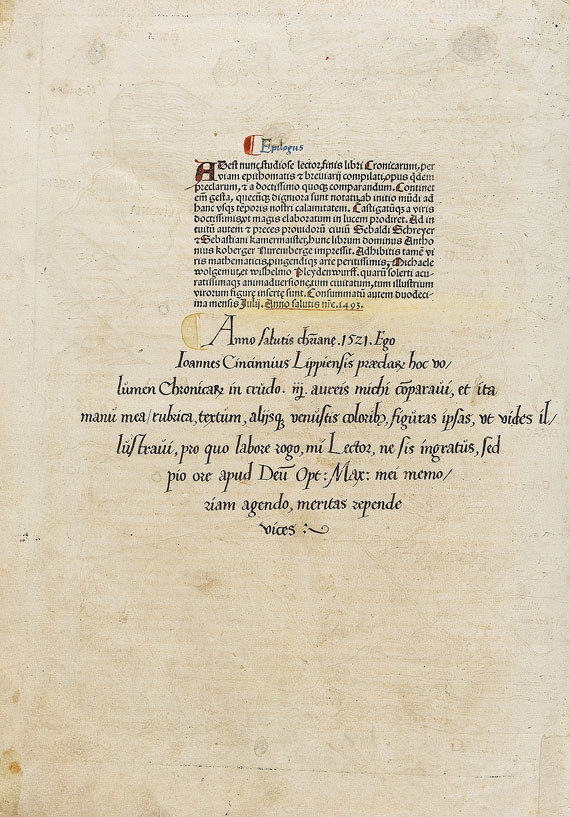 Epilogus
ADest nunc studiose lector finis libri Cronicarum, per
viam epithomatis ⁊ breuiarij compilati, opus q̄dem
preclarum, ⁊ a doctissimo quoqꝫ comparandum. Continet
em̄ gesta, quecūqꝫ digniora sunt notatu ab initio mūdi ad
hanc vsqꝫ tēporis nostri calamitatem. Castigatūqꝫ a viris
doctissimis vt magis elaboratum in lucem prodiret. Ad in
tuitū autem ⁊ preces prouidorū ciuiū Sebaldi Schreyer
⁊ Sebastiani kamermaister, hunc librum dominus Antho
nius koberger Nuremberge impressit. Adhibitis tamē vi
ris mathematicis pingendiqꝫ arte peritissimis, Michaele
wolgemut et wilhelmo Pleydenwurff. quarū solerti acu-
ratissimaqꝫ animaduersione tum ciuitatum, tum illustrium
virorum figure inserte sunt. Consummatū autem duodeci
ma mensis Julij. Anno salutis nr̄e. 1493.
Anno salutis chr̄ianę .1521. Ego
Ioannes Cincinnius Lippiensis præclarꝝ hoc vo/
lumen Chronicarꝝ in crudo .iij. aureis michi cōparaui, et ita
manu mea / rubrica, textum, alijsqꝫ venustis coloribꝫ, figuras ipsas, vt vides il/
lustraui, pro quo labore rogo, mi Lector, ne sis ingratus, sed
pio ore apud Deū Opt: Max: mei memo/
riam agendo, meritas repende
vices :~